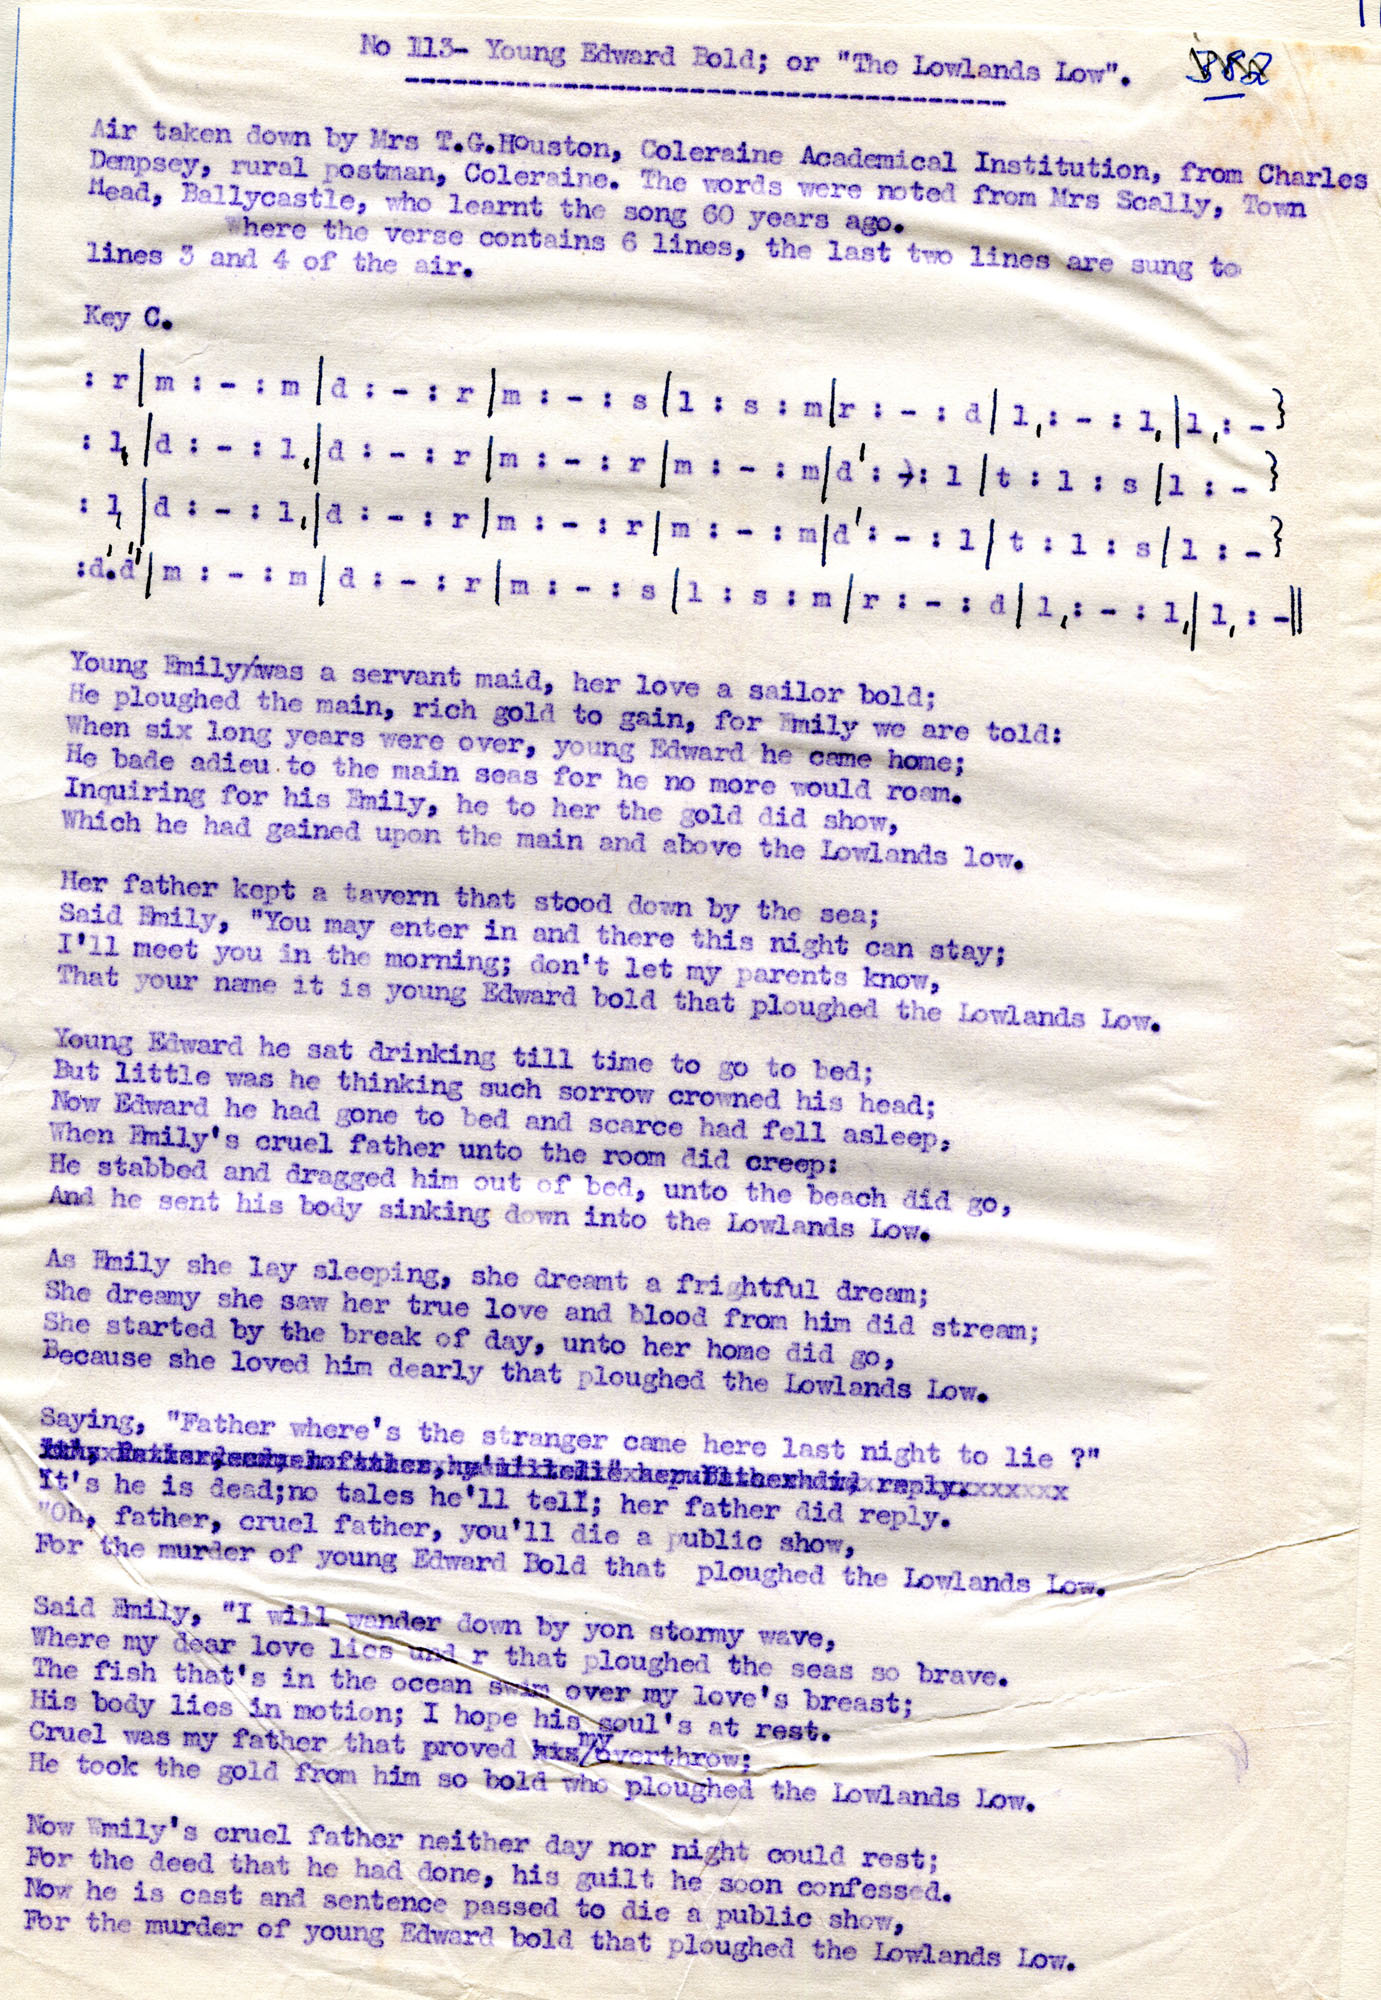 No 113- Young Edward Bold; or "The Lowlands Low".
Air taken down by Mrs T.G.Houston, Coleraine Academical Institution, from Charles
Dempsey, rural postman, Coleraine. The words were noted from Mrs Scally, Town
Head, Ballycastle, who learnt the song 60 years ago.
Where the verse contains 6 lines, the last two lines are sung to
lines 3 and 4 of the air.
Key C.
: r | m : - : m | d : - : r | m : - : s | l : s : m | r : - : d | l, : - : l, | l, : - }
: l, | d : - : l, | d : - : r | m : - : r | m : - : m | d' : - : l | t : l : s | l : - }
: l, | d : - : l, | d : - : r | m : - : r | m : - : m | d' : - : l | t : l : s | l : - }
:d'.d' | m : - : m | d : - : r | m : - : s | l : s : m | r : - : d | l, : - : l, | l, : - ||
Young Emily was a servant maid, her love a sailor bold;
He ploughed the main, rich gold to gain, for Emily we are told:
When six long years were over, young Edward he came home;
He bade adieu to the main seas for he no more would roam.
Inquiring for his Emily, he to her the gold did show,
Which he had gained upon the main and above the Lowlands low.
Her father kept a tavern that stood down by the sea;
Said Emily, "You may enter in and there this night can stay;
I'll meet you in the morning; don't let my parents know,
That your name it is young Edward bold that ploughed the Lowlands Low.
Young Edward he sat drinking till time to go to bed;
But little was he thinking such sorrow crowned his head;
Now Edward he had gone to bed and scarce had fell asleep,
When Emily's cruel father unto the room did creep:
He stabbed and dragged him out of bed, unto the beach did go,
And he sent his body sinking down into the Lowlands Low.
As Emily she lay sleeping, she dreamt a frightful dream;
She dreamy she saw her true love and blood from him did stream;
She started by the break of day, unto her home did go,
Because she loved him dearly that ploughed the Lowlands Low.
Saying, "Father where's the stranger came here last night to lie ?"
It's he is dead;no tales he'll tell; her father did reply.
"Oh, father, cruel father, you'll die a public show,
For the murder of young Edward Bold that ploughed the Lowlands Low.
Said Emily, "I will wander down by yon stormy wave,
Where my dear love lies und r that ploughed the seas so brave.
The fish that's in the ocean swim over my love's breast;
His body lies in motion; I hope his soul's at rest.
Cruel was my father that proved my overthrow;
He took the gold from him so bold who ploughed the Lowlands Low.
Now Emily's cruel father neither day nor night could rest;
For the deed that he had done, his guilt he soon confessed.
Now he is cast and sentence passed to die a public show,
For the murder of young Edward bold that ploughed the Lowlands Low.